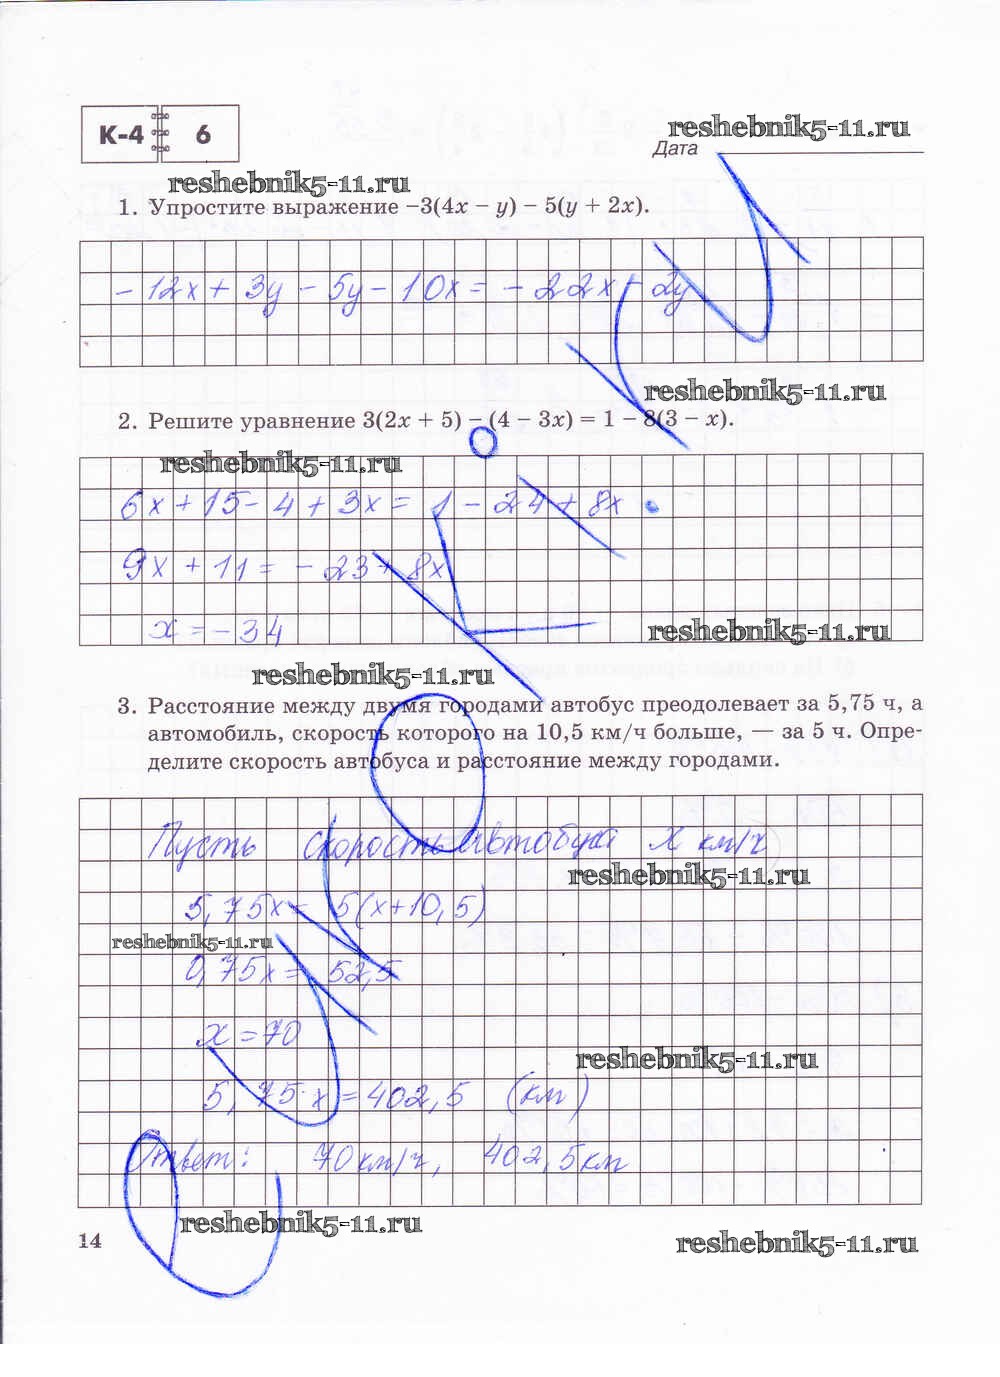 К-4 6
reshebnik5-11.ru
Дата
reshebnik5-11.ru
1. Упростите выражение –3(4x – y) – 5(y + 2x).
- 12x + 3y - 5y - 10x = - 22x - 2y
reshebnik5-11.ru
2. Решите уравнение 3(2x + 5) – (4 – 3x) = 1 – 8(3 – x).
reshebnik5-11.ru
6x + 15 - 4 + 3x = 1 - 24 + 8x
9x + 11 = - 23 + 8x
x = - 34
reshebnik5-11.ru
reshebnik5-11.ru
3. Расстояние между двумя городами автобус преодолевает за 5,75 ч, а
автомобиль, скорость которого на 10,5 км/ч больше, — за 5 ч. Опре-
делите скорость автобуса и расстояние между городами.
Пусть скорость автобуса x км/ч
reshebnik5-11.ru
5,75x = 5(x+10,5)
reshebnik5-11.ru
0,75x = 52,5
x = 70
reshebnik5-11.ru
5,75·x = 402,5 (км)
Ответ: 70 км/ч, 402,5 км
reshebnik5-11.ru
14
reshebnik5-11.ru